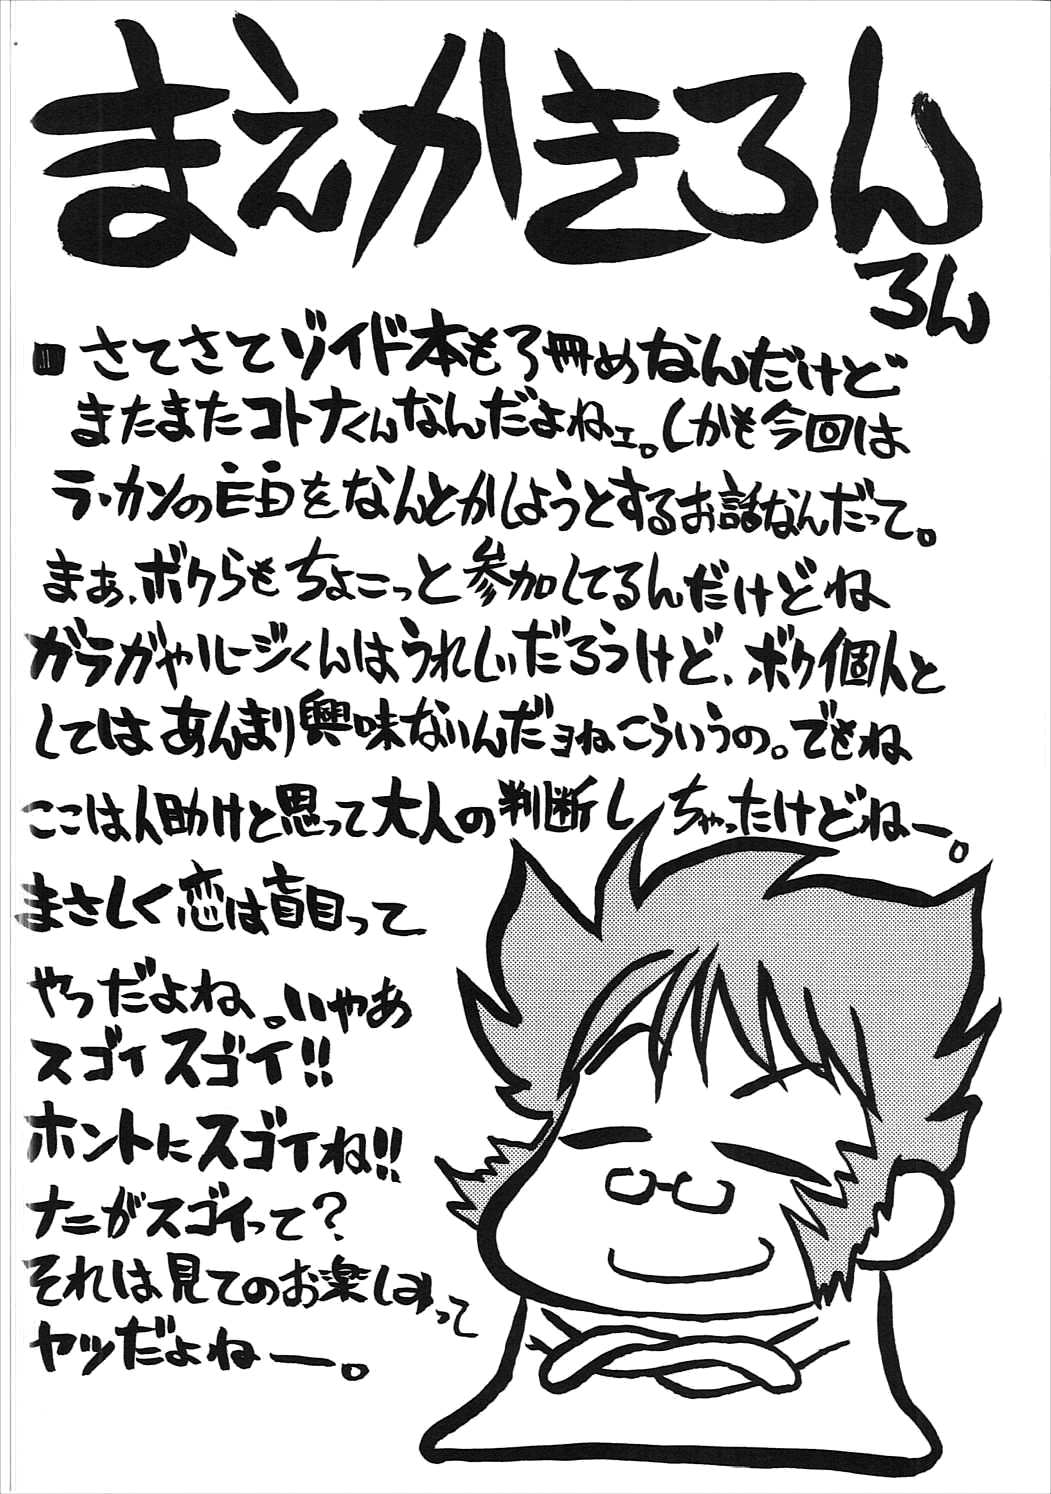 まえかきろん
ろん
■さてさてゾイド本も3冊めなんだけど
またまたコトナくんなんだよねェ。しかも今回は
ラ・カンのをなんとかしようとするお話なんだって。
まぁ、ボクらもちょこっと参加してるんだけどね
ガラガやルージくんはうれしいだろうけど、ボク個人と
してはあんまり興味ないんだョねこういうの。でもね
ここは人助けと思って大人の判断しちゃったけどねー。
まさしく恋は盲目って
やつだよね、。いやあ
スゴイスゴイ!!
ホントにスゴイね!!
ナニがスゴイって?
それは見てのお楽しみって
ヤツだよねー。